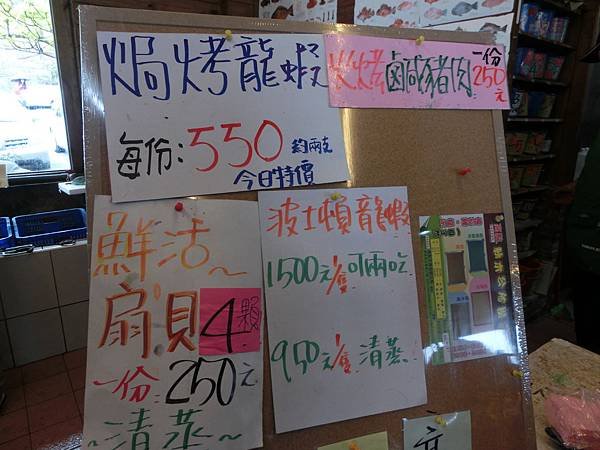 焗烤龍蝦
每份:550 約兩支
今日特價
火烤鹹豬肉 一份 250元
鮮活~
扇貝4顆
一份:250元
~清蒸~
波士頓龍蝦
1500元/隻可兩吃
950元/隻 清蒸